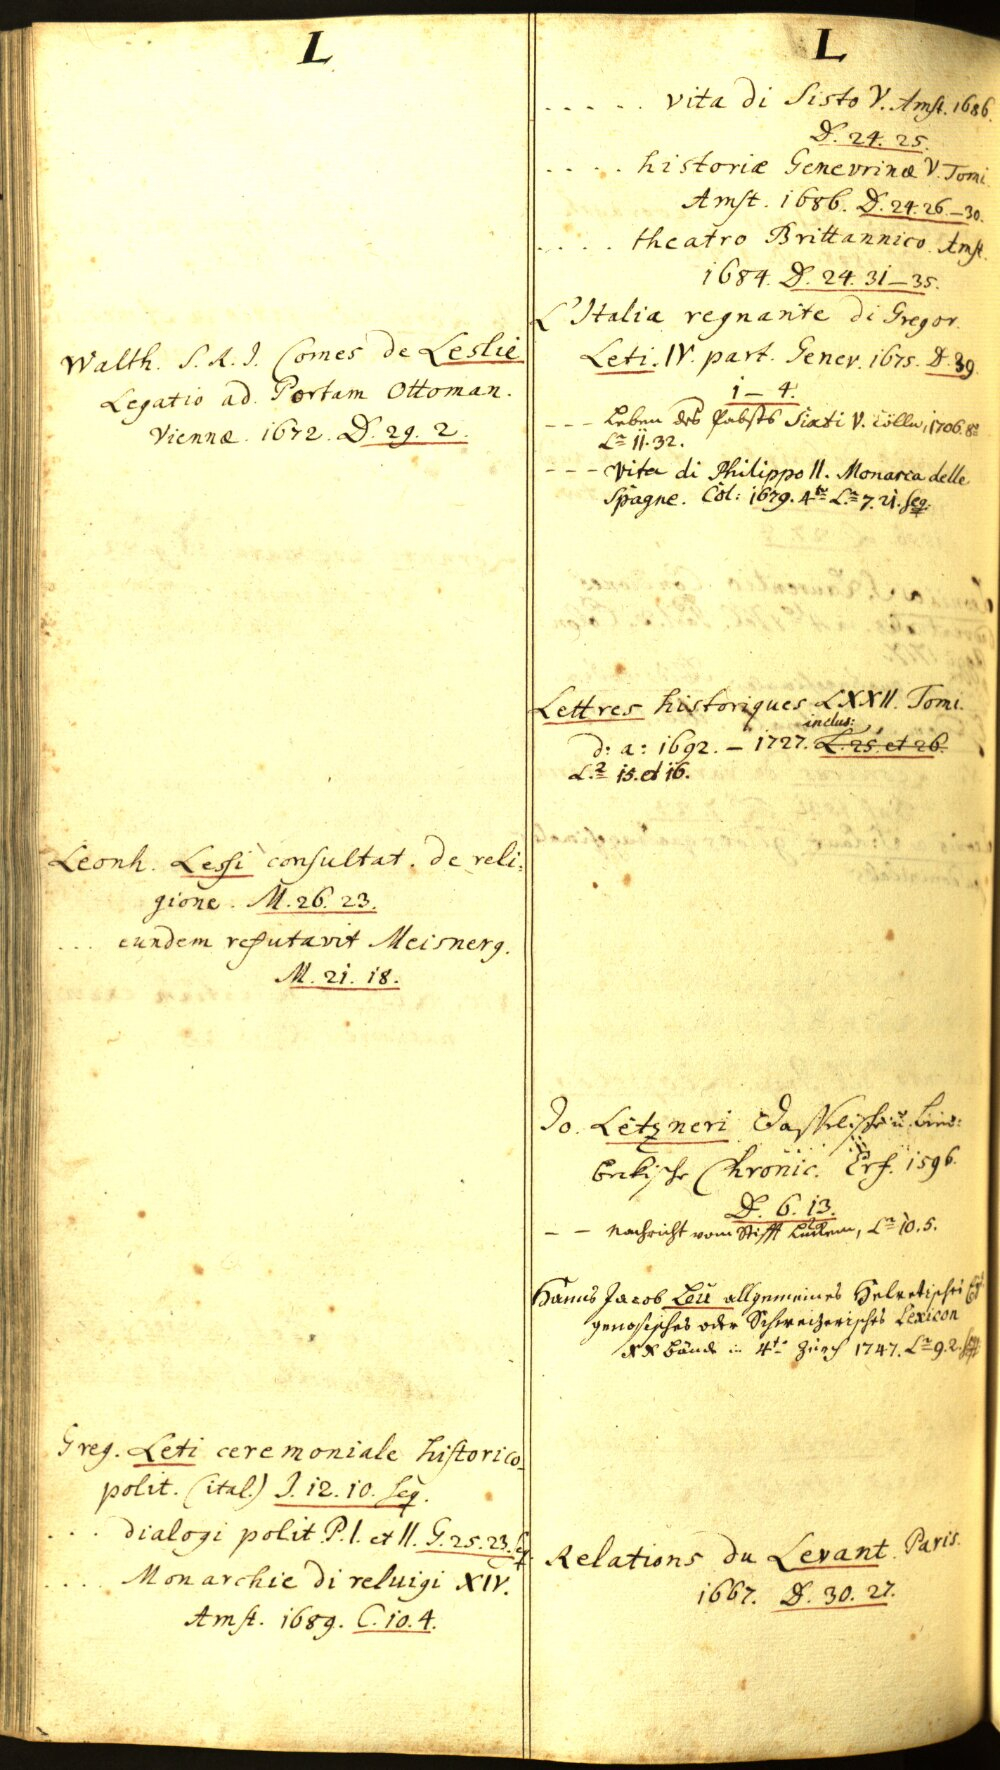 L
Walth. S. R. I. Comes de Leslie
Legatio ad Portam Ottoman.
Viennæ. 1672. D. 29. 2.
Leonh. Lessi consultat. de reli-
gione. M. 26. 23.
... eundem refutavit Meisnerg.
M. 21. 18.
Greg. Leti ceremoniale historico-
polit. (ital.) J. 12. 10. seq.
... dialogi polit. P. I. et II. G. 25. 23. seq.
.... Monarchie di reluigi XIV.
Amst. 1689. C. 10. 4.
L
..... vita di Sisto V. Amst. 1686.
D. 24. 25.
.... historiæ Genevrinæ V. Tomi
Amst. 1686. D. 24. 26.–30.
.... theatro Brittannico. Amst.
1684. D. 24. 31–35.
L'Italia regnante di Gregor.
Leti. IV. part. Genev. 1675. D. 39.
1–4.
--- Leben des Pabsts Sixti V. Cölln, 1706. 8º
L.ª 11. 32.
--- vita di Philippo II. Monarca delle
Spagne. Col: 1679. 4to L.ª 7. 21. seq.
Lettres historiques LXXII. Tomi.
d: a: 1692. – 1727. inclus: L. 25. et 26.
L.ª 15. et 16.
Jo. Letzneri Dasselische u. Eim-
beckische Chronic. Erf. 1596.
D. 6. 13.
-- Nachricht vom Stifft, L.ª 10. 5.
Hanns Jacob Leu allgemeines Helvetisches Eyd-
genosisches oder Schweitzerisches Lexicon
XX Bände in 4to Zürch 1747. L.ª 9. 2. seqq
Relations du Levant. Paris.
1667. D. 30. 27.